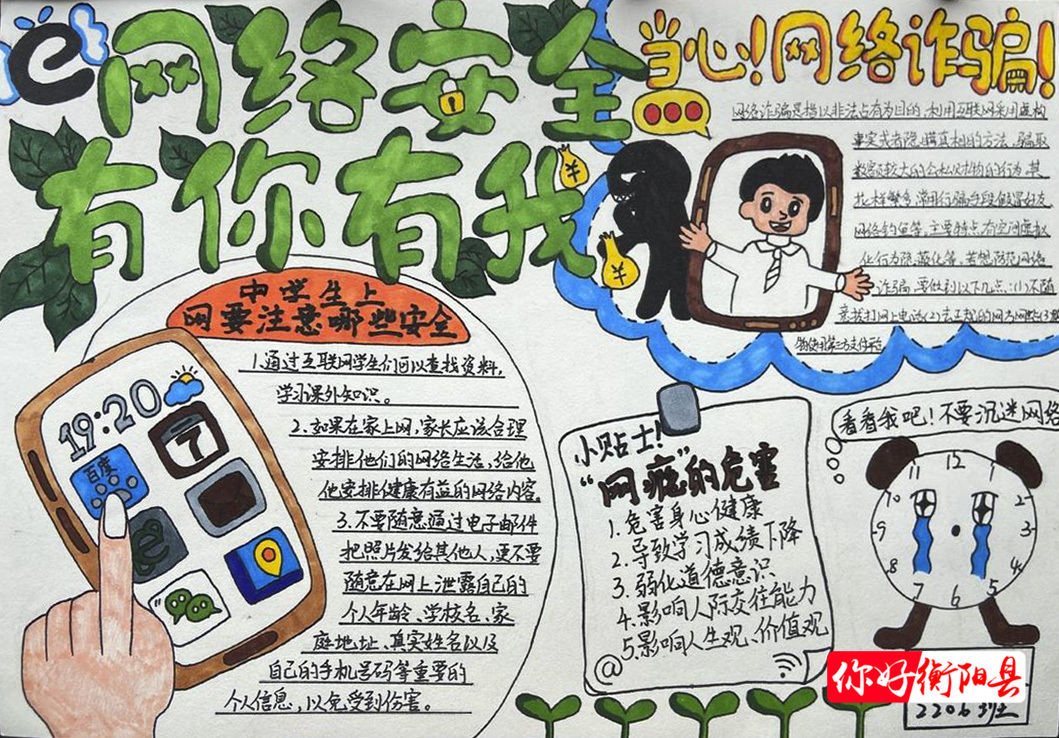 e
网络安全
有你有我
当心!网络诈骗!
网络诈骗是指以非法占有为目的,利用互联网采用虚构
事实或者隐瞒真相的方法,骗取
数额较大的公私财物的行为,其
花样繁多,常用行骗手段假冒好友
网络钓鱼等,主要特点,有空间虚拟
化行为隐蔽化等,若想防范网络
诈骗,要做到以下几点:(1)不随
中学生上
网要注意哪些安全
1.通过互联网学生们可以查找资料,
学习课外知识。
2.如果在家上网,家长应该合理
安排他们的网络生活,给他
他安排健康有益的网络内容。
3.不要随意通过电子邮件
把照片发给其他人,更不要
随意在网上泄露自己的
个人年龄、学校名、家
庭地址、真实姓名以及
自己的手机号码等重要的
个人信息,以免受到伤害。
19:20
百度
7
e
¥
¥
小贴士!
“网瘾”的危害
1.危害身心健康
2.导致学习成绩下降
3.弱化道德意识
4.影响人际交往能力
5.影响人生观、价值观
@
看看我吧!不要沉迷网络
12
1
2
3
4
5
6
7
8
9
10
你好衡阳县
2206班